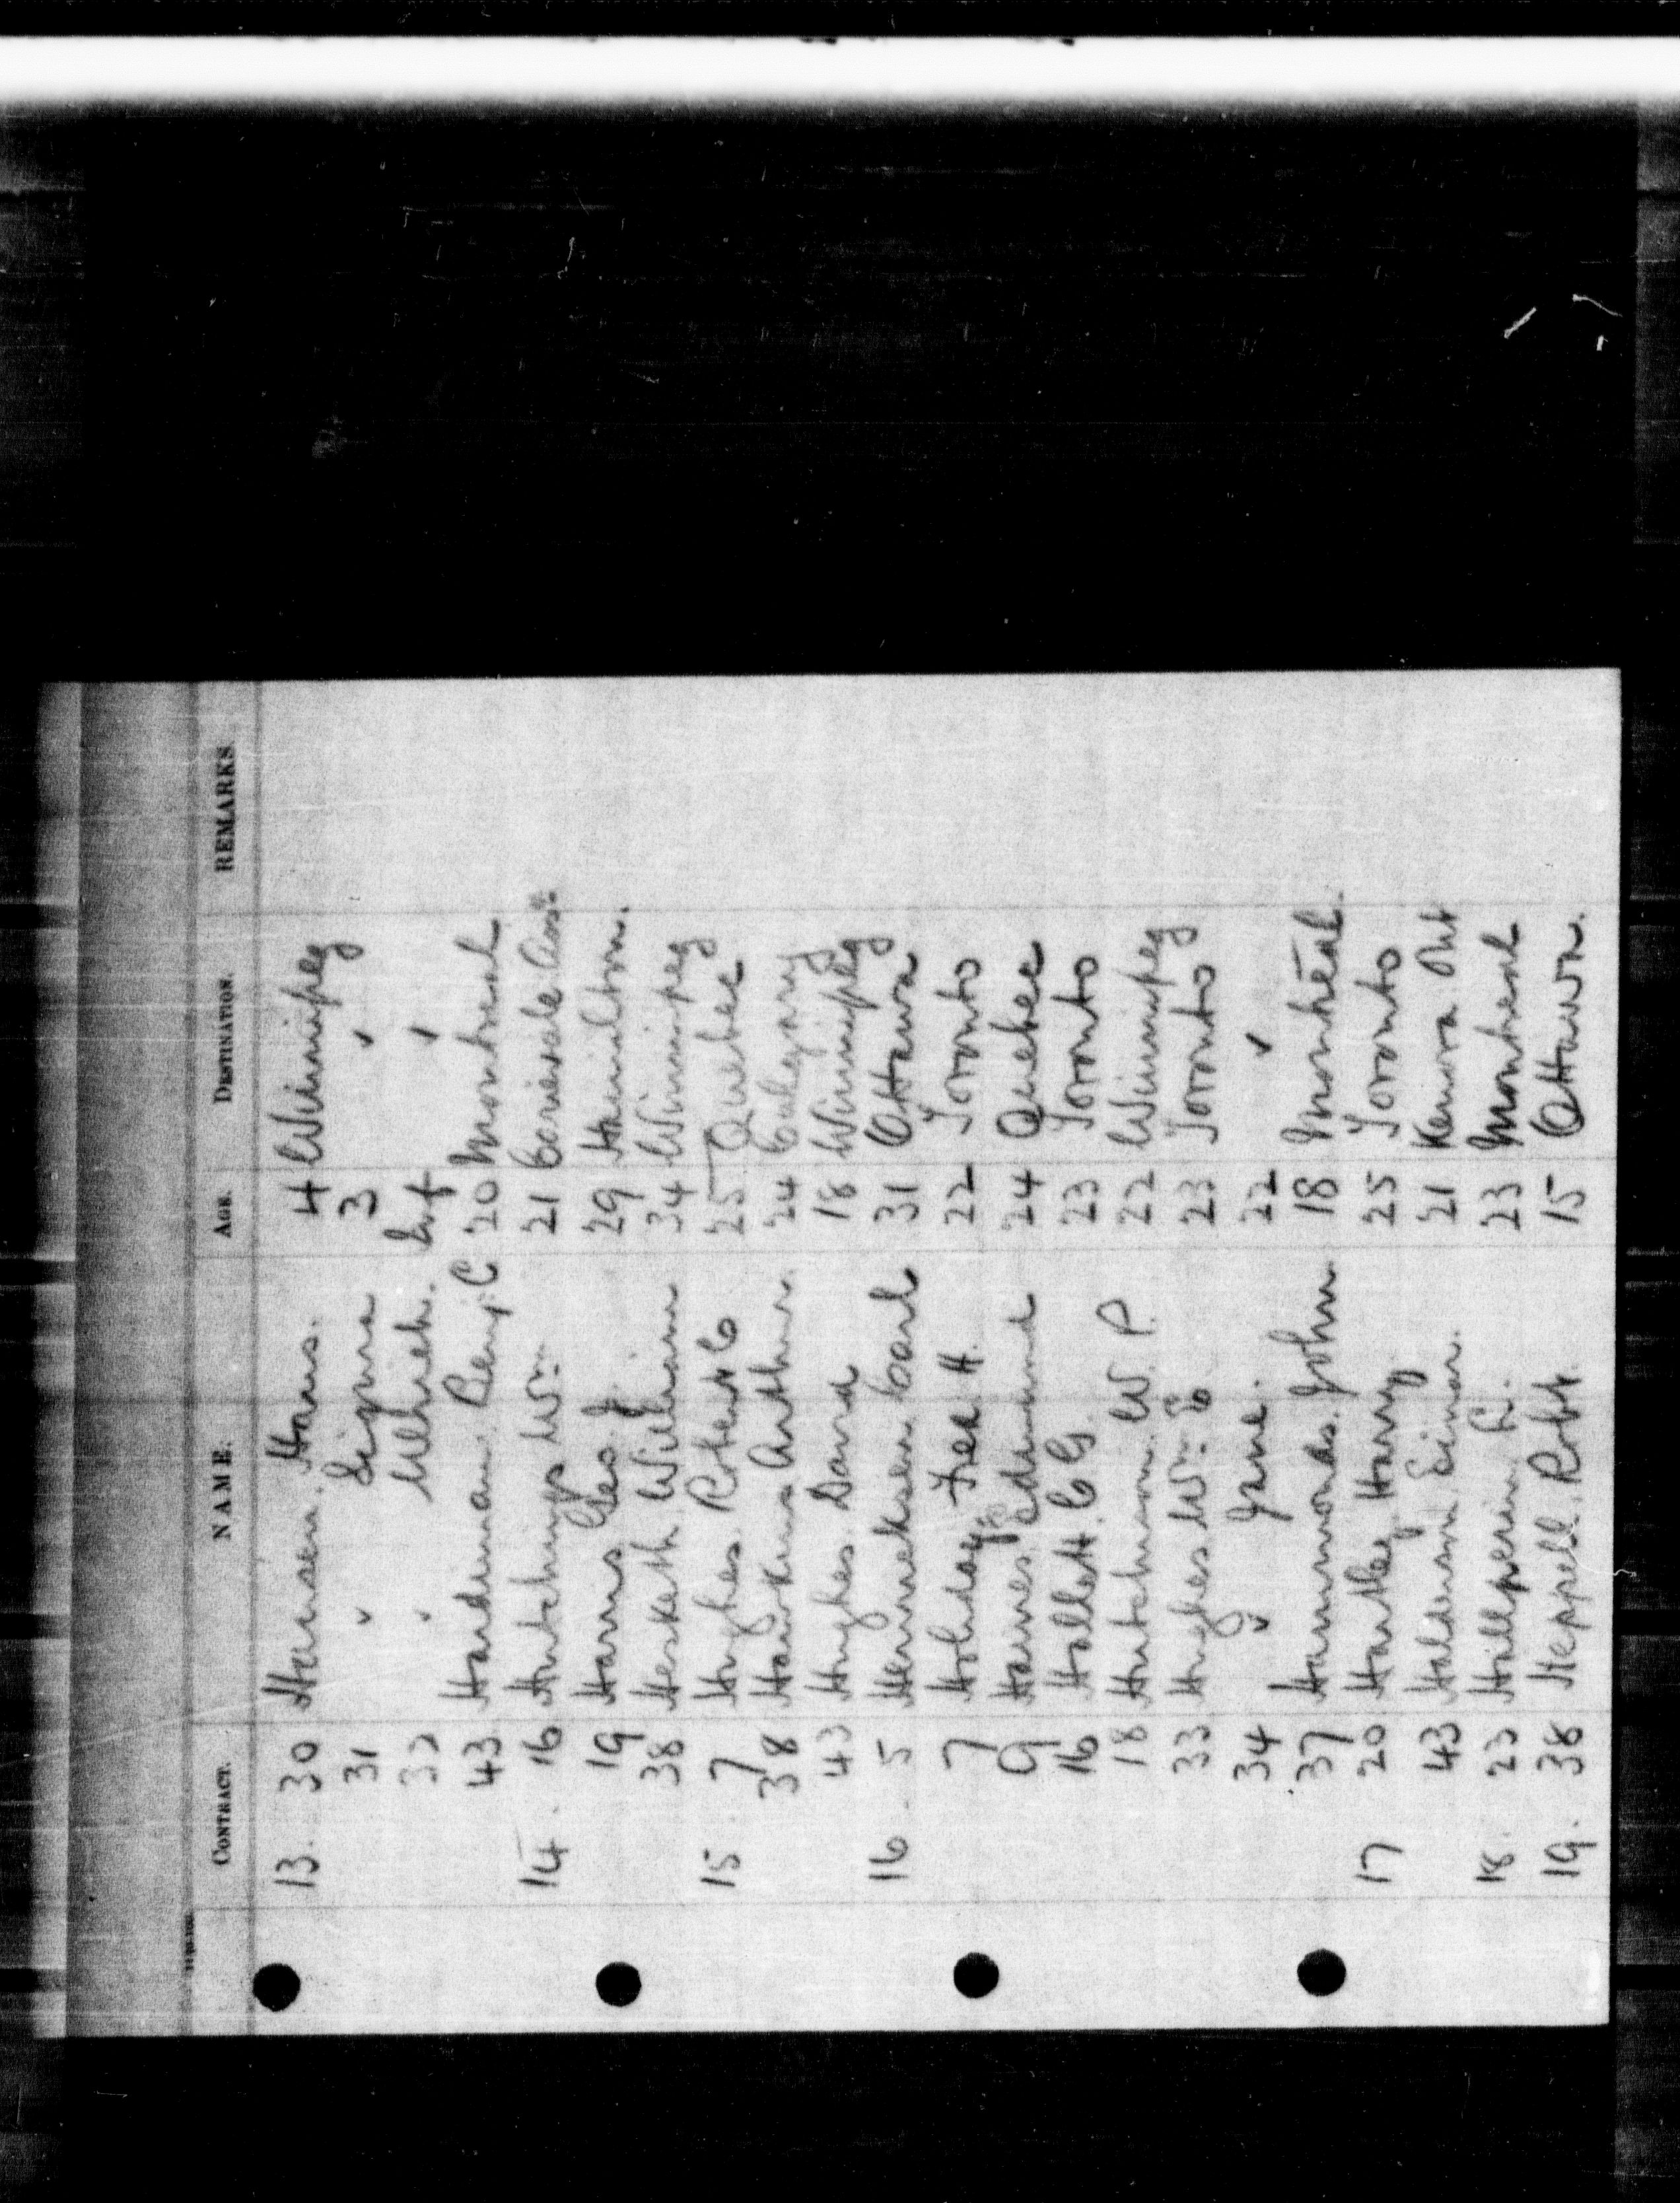 CONTRACT. NAME. AGE. DESTINATION. REMARKS.
13. 30 Hansen. Hans. 4 Winnipeg
31 " Signa 3 "
32 " Ulhrich. Inf "
43 Hardiman. Benj. C 20 Montreal
14. 16 Hutchings Wm. 21 Carievale
19 Harris Geo. J. 29 Hamilton.
38 Hesketh. William 34 Winnipeg
15. 7 Hughes. Robert C 25 Quebec
38 Hawkins Arthur. 24 Calgary
43 Hughes. David 18 Winnipeg
16. 5 Henricksen Carl 31 Ottawa
7 Holiday. Fred. H. 22 Toronto
9 Haines. Edmund 24 Quebec
16 Hallett. C G. 23 Toronto
18 Hutchinson. W. P. 22 Winnipeg
33 Hughes. Wm. E 23 Toronto
34 " Jane. 22 "
37 Hammonds. John. 18 Montreal.
17 20 Hartley Harry 25 Toronto
43 Haldenson. Einar. 21 Kenora Ont
18. 23 Hallperin. L. 23 Montreal
19. 38 Heppell. Robt. 15 Ottawa.